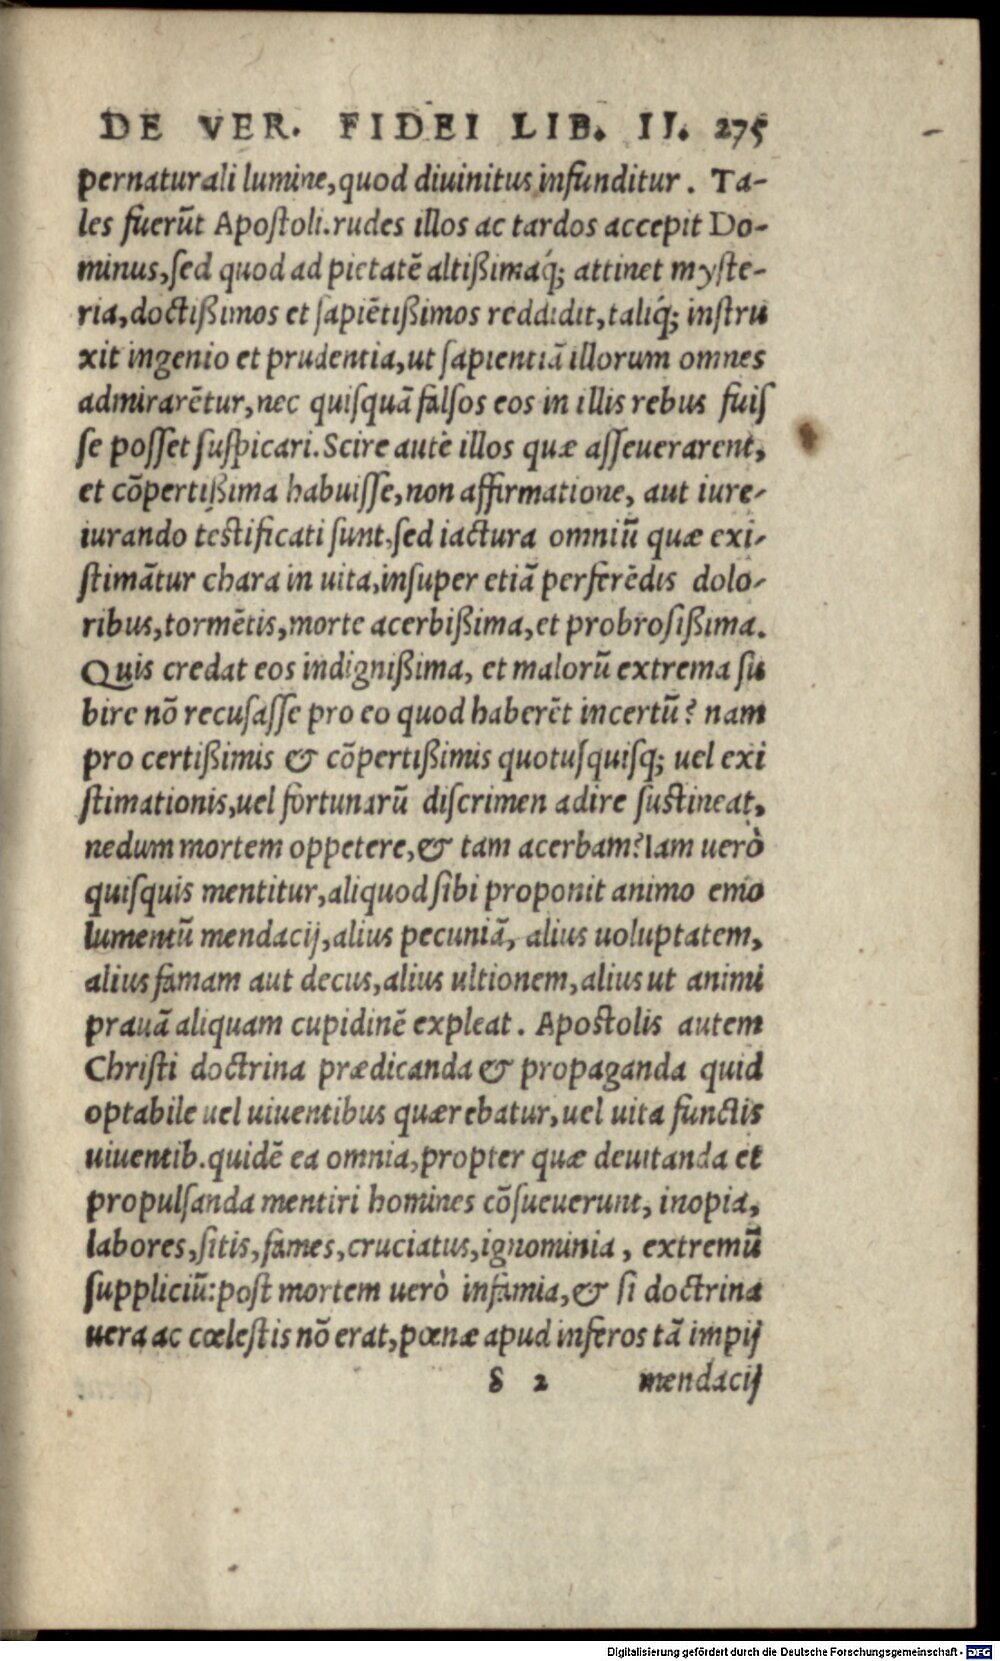 DE VER. FIDEI LIB. II. 275
pernaturali lumine, quod diuinitus infunditur. Ta-
les fuerūt Apoſtoli. rudes illos ac tardos accepit Do-
minus, ſed quod ad pietatē altißimaq́; attinet myſte-
ria, doctißimos et ſapiētißimos reddidit, taliq́; inſtru
xit ingenio et prudentia, ut ſapientiā illorum omnes
admirarētur, nec quiſquā falſos eos in illis rebus fuiſ
ſe poſſet ſuſpicari. Scire autē illos quæ aſſeuerarent,
et cōpertißima habuiſſe, non affirmatione, aut iure-
iurando teſtificati ſunt, ſed iactura omniū quæ exi-
ſtimātur chara in uita, inſuper etiā perferēdis dolo-
ribus, tormētis, morte acerbißima, et probroſißima.
Quis credat eos indignißima, et malorū extrema ſu
bire nō recuſaſſe pro eo quod haberēt incertū? nam
pro certißimis & cōpertißimis quotuſquiſq; uel exi
ſtimationis, uel fortunarū diſcrimen adire ſuſtineat,
nedum mortem oppetere, & tam acerbam? Iam uerò
quiſquis mentitur, aliquod ſibi proponit animo emo
lumentū mendacij, alius pecuniā, alius uoluptatem,
alius famam aut decus, alius ultionem, alius ut animi
prauā aliquam cupidinē expleat. Apoſtolis autem
Chriſti doctrina prædicanda & propaganda quid
optabile uel uiuentibus quærebatur, uel uita functis
uiuentib. quidē ea omnia, propter quæ deuitanda et
propulſanda mentiri homines cōſueuerunt, inopia,
labores, ſitis, fames, cruciatus, ignominia, extremū
ſuppliciū: poſt mortem uerò infamia, & ſi doctrina
uera ac cœleſtis nō erat, pœnæ apud inferos tā impij
S 2 mendacij
Digitalisierung gefördert durch die Deutsche Forschungsgemeinschaft - DFG